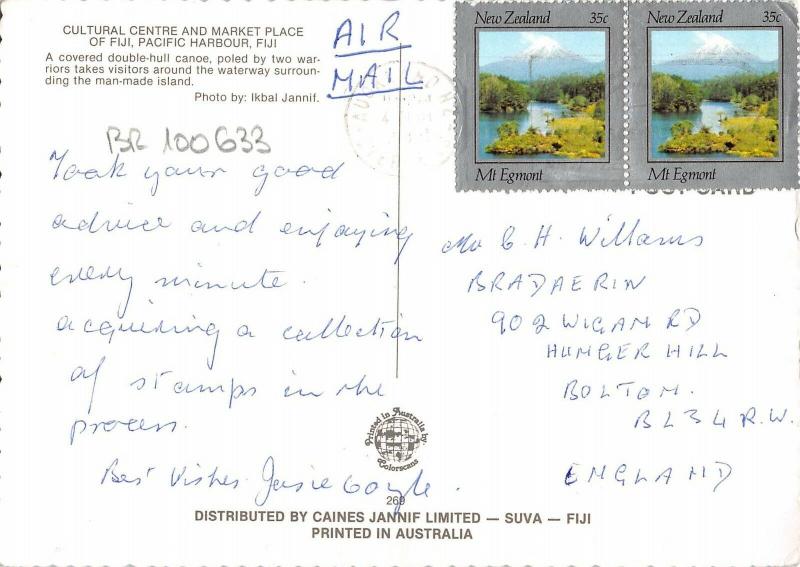 CULTURAL CENTRE AND MARKET PLACE
OF FIJI, PACIFIC HARBOUR, FIJI
A covered double-hull canoe, poled by two war-
riors takes visitors around the waterway surroun-
ding the man-made island.
Photo by: Ikbal Jannif.
AIR
MAIL
New Zealand 35c
Mt Egmont
New Zealand 35c
Mt Egmont
POST CARD
BR 100633
Took your good
advice and enjoying
every minute.
acquiring a collection
of stamps in the
process.
Best Wishes Josie Coyle.
Mr C. H. Williams
BRADAERIN
902 WIGAN RD
HUNGER HILL
BOLTON.
BL3 4 R.W.
ENGLAND
Printed in Australia by:
Colorscans
269
DISTRIBUTED BY CAINES JANNIF LIMITED — SUVA — FIJI
PRINTED IN AUSTRALIA